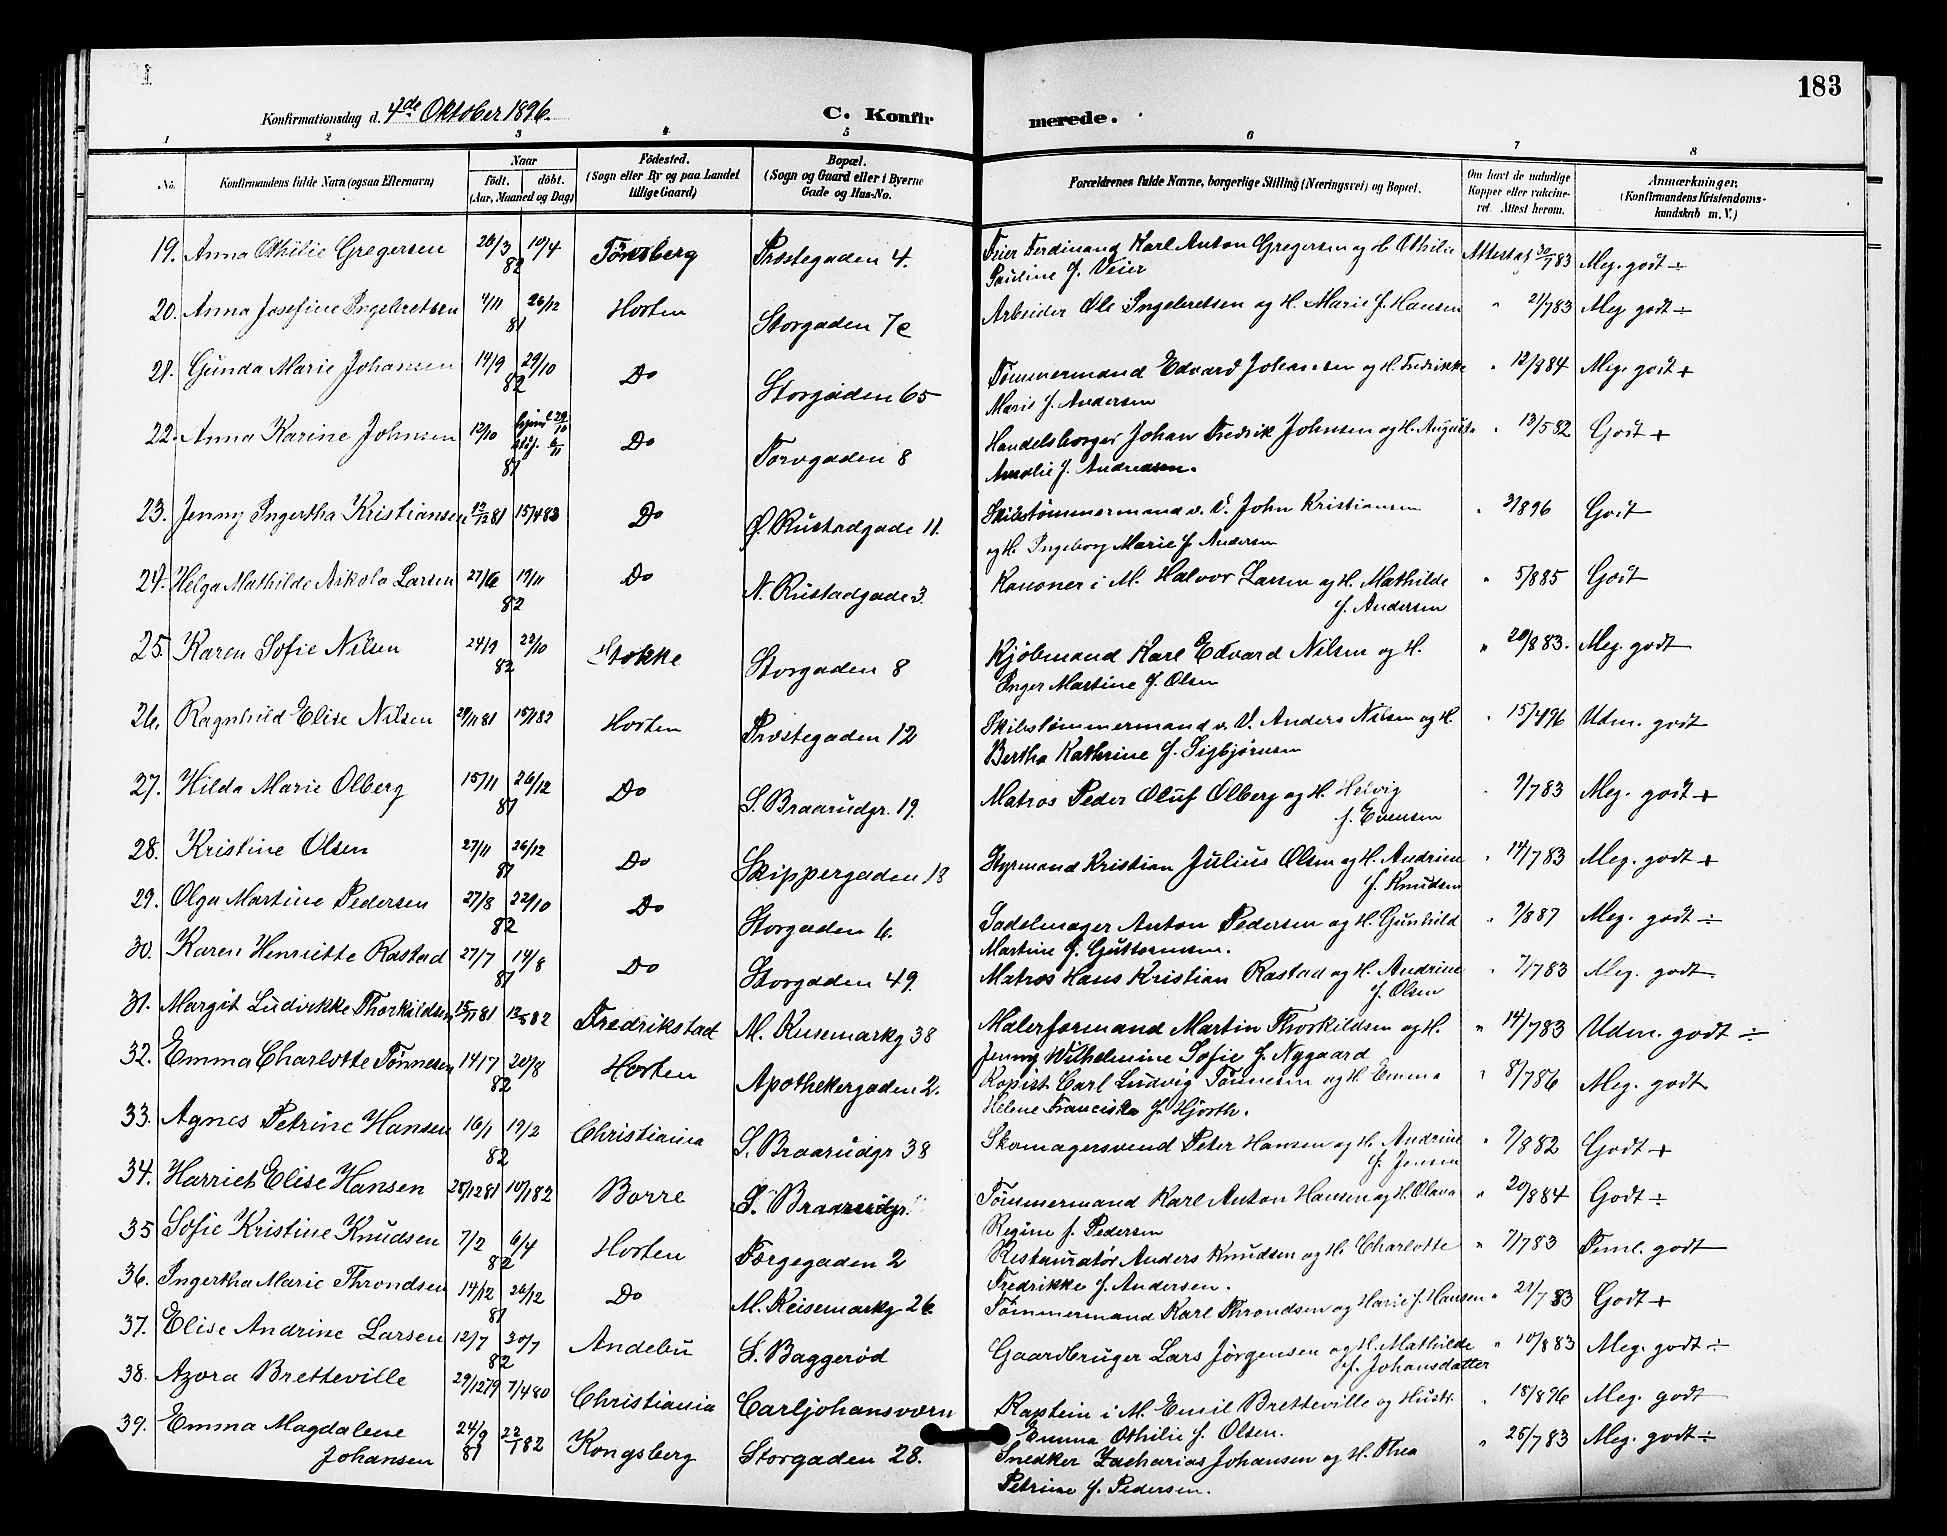 183
Konfirmationsdag d. 4de Oktober 1896. C. Konfirmerede.
1 2 3 4 5 6 7 8
No. Konfirmandens fulde Navn (ogsaa Efternavn) Naar født, døbt. (Aar, Maaned og Dag) Fødested. (Sogn eller By og paa Landet tillige Gaard) Bopæl. (Sogn og Gaard eller i Byerne Gade og Hus-No. Forældrenes fulde Navne, borgerlige Stilling (Næringsvei) og Bopæl. Om havt de naturlige Kopper eller vakcineret. Attest herom. Anmærkninger. (Konfirmandens Kristendomskundskab m. V.)
19. Anna Othilie Gregersen 26/3 10/4 82 Tønsberg Præstegaden 4. Feier Ferdinand Karl Anton Gregersen og H. Othilie Attest af 30/7 83 Meg. godt ÷
Pauline f. Veier
20. Anna Josefine Ingebretsen 4/11 26/12 81 Horten Storgaden 7c Arbeider Ole Ingebretsen og H. Marie f. Hansen " 21/7 83 Meg. godt ÷
21. Gunda Marie Johansen 19/9 29/10 82 Do Storgaden 65 Tømmermand Edvard Johansen og H. Fredrikke " 12/9 84 Meg. godt +
Marie f. Andersen
22. Anna Karine Johnsen 12/10 hjem. 29/10 stdf. 6/11 81 Do Torvgaden 8 Handelsborger Johan Fredrik Johnsen og H. Augusta " 13/5 82 Godt +
Amalie f. Andreasen.
23. Jenny Ingertha Kristiansen 12/12 81 15/4 83 Do Ø. Rustadgade 11. Skibstømmermand v. V. John Kristiansen " 3/8 96 Godt
og H. Ingeborg Marie f. Andersen
24. Helga Mathilde Nikola Larsen 27/6 19/11 82 Do N. Rustadgade 3. Kanoner i M. Halvor Larsen og H. Mathilde " 5/8 85 Godt
f. Andersen
25. Karen Sofie Nilsen 24/9 22/10 82 Stokke Storgaden 8 Kjøbmand Karl Edvard Nilsen og H. " 20/8 83. Meg. godt
Inger Martine f. Olsen
26. Ragnhild Elise Nilsen 29/11 81 15/1 82 Horten Præstegaden 12 Skibstømmermand v. V. Anders Nilsen og H. " 15/4 96 Udm. godt
Bertha Kathrine f. Sigbjørnsen
27. Hilda Marie Olberg 15/11 26/12 81 Do S. Braarudgr. 19. Matros Peder Oluf Olberg og H. Helvig " 9/7 83 Meg. godt +
f. Evensen
28. Kristine Olsen 27/11 26/12 81 Do Skippergaden 18 Styrmand Kristian Julius Olsen og H. Andrine " 14/7 83 Meg. godt +
f. Knudsen
29. Olga Martine Pedersen 27/8 22/10 82 Do Storgaden 6. Sadelmager Anton Pedersen og H. Gunhild " 9/8 87 Meg. godt ÷
Martine f. Guttormsen.
30. Karen Henriette Rastad 27/7 14/8 81 Do Storgaden 49. Matros Hans Kristian Rastad og H. Andrine " 7/7 83 Meg. godt
f. Olsen
31. Margit Ludvikke Thorkildsen 15/11 81 12/5 82 Fredrikstad M. Keisemarkg 38 Malerformand Martin Thorkildsen og H. " 14/7 83 Udm. godt ÷
Jenny Wilhelmine Sofie f. Nygaard
32. Emma Charlotte Tønnesen 14/7 20/8 82 Horten Apothekergaden 2. Kopist Carl Ludvig Tønnesen og H. Emma " 8/7 86 Meg. godt
Helene Franciska f. Hjorth.
33. Agnes Petrine Hansen 16/1 19/2 82 Christiania S. Braarudgr 38 Skomagersvend Peter Hansen og H. Andrine " 9/8 82 Godt +
f. Jensen
34. Harriet Elise Hansen 28/12 81 10/1 82 Borre S. Braarudgr. Tømmermand Karl Anton Hansen og H. Olava " 20/8 84 Godt ÷
Regine f. Pedersen
35 Sofie Kristine Knudsen 7/2 6/4 82 Horten Færgegaden 2 Restauratør Anders Knudsen og H. Charlotte " 7/7 83 Teml. godt
Fredrikke f. Andersen.
36. Ingertha Marie Throndsen 14/12 26/12 81 Do M. Keisemarkg 26 Tømmermand Karl Throndsen og Marie f. Hansen " 21/7 83 Godt +
37. Elise Andrine Larsen 12/7 30/7 82 Andebu S. Baggerød Gaardbruger Lars Jørgensen og H. Mathilde " 10/8 83 Meg. godt ÷
f. Johansdatter
38. Azora Bretteville 29/12 79 7/4 80 Christiania Carljohansværn Kaptein i M. Emil Bretteville og Hustr. " 18/8 96 Meg. godt
Emma Othilie f. Olsen.
39. Emma Magdalene 24/9 81 22/1 82 Kongsberg Storgaden 28. Snedker Zacharias Johansen og H. Thea " 25/7 83 Meg. godt ÷
Johansen Petrine f. Pedersen.